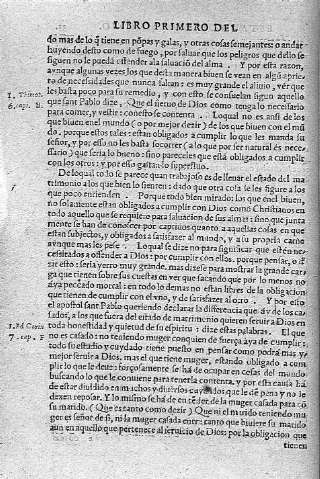 LIBRO PRIMERO DEL
do mas de lo q̃ tiene en põpas y galas, y otras cosas semejantes: o andar
huyendo desto como de fuego, por saluar que los peligros que dello se
siguen no le pueda estender a la saluació del alma. Y por esta razon,
aunque algunas vezes los que desta manera biuen se vean en
do de necesidades que nunca faltan: es muy grande el aliuio, ver que
les basta poco para su remedio, y con esto se consuelan siguiẽdo aquello
1, Thimot.
que sant Pablo dize, Que el sieruo de Dios como tenga lo necessario
6, cap. 8.
para comer, y vestir: con esto se contenta. Loqual no es ansi de los
que biuen en el mundo (o por mejor dezir) de los que biuen con el mũ
do. porque estos tales estan obligados a cumplir lo que les manda su
señor, y por esso no les basta socorrer (a lo que por ser natural es nece
ssario) que seria lo bueno: sino pareceles que está obligados a cumplir
con los otros: y por esto gastan lo superfluo.
De loqual todo se parece quan trabajoso es de lleuar el estado del ma
trimonio a los que bien lo sienten: dado que otra cosa se les figure a los
que poco entienden. Porque como bien mirado: los que en el biuen,
no solamente estan obligados a cumplir con Dios como Christianos en
todo aquello que se requiere para saluacion de sus almas: sino que junta
mente se han de conocer por captiuos quanto a aquellas cosas en que
estan subjectos, y obligados a satisfazer al mundo, y a su propria carne
aunque mas les pese. Loqual se dize no para significar que estén ne-
cesitados a ofender a Dios: por cumplir con ellos. porque pensar, o
tar esto: seria yerro muy grande, mas dizese para mostrar la grande car
ga que tienen sobre sus cuestas en ver que sacando que por lo menos no
aya peccado mortal: en todo lo demas no estan libres de la obligacion
que tienen de cumplir con el vno, y de satisfazer al otro. Y por esto
el apostol sant Pablo queriendo declarar la differencia que ay de los ca
sados, a los que fuera del estado de matrimonio quieren seruir a Dios en
1. Ad Corin.
toda honestidad y quietud de su espiritu: dize estas palabras. El que
7. cap.
no es casado: no teniendo muger con quien de fuerça aya de cumplir:
todo su estudio y cuydado tiene puesto en pensar como podrá mas y
mejor seruir a Dios. mas el que tiene muger, estando obligado a cum
plir lo que le deue: forçosamente se ha de ocupar en cosas del mundo
buscando lo que le conuiene para tenerla contenta, y por esta causa há
de estar diuidido en muchos y diuersos cuydados que le dé pena y no le
dexen reposar. Y lo mismo se ha de en tẽder de la muger casada para cõ
su marido. (Que es tanto como dezir) Que ni el marido teniendo mu
ger es señor de si, ni la muger casada entretanto que biuiere su marido
aun en aquello que pertenece al seruicio de Dios: por la obligacion que
tienen